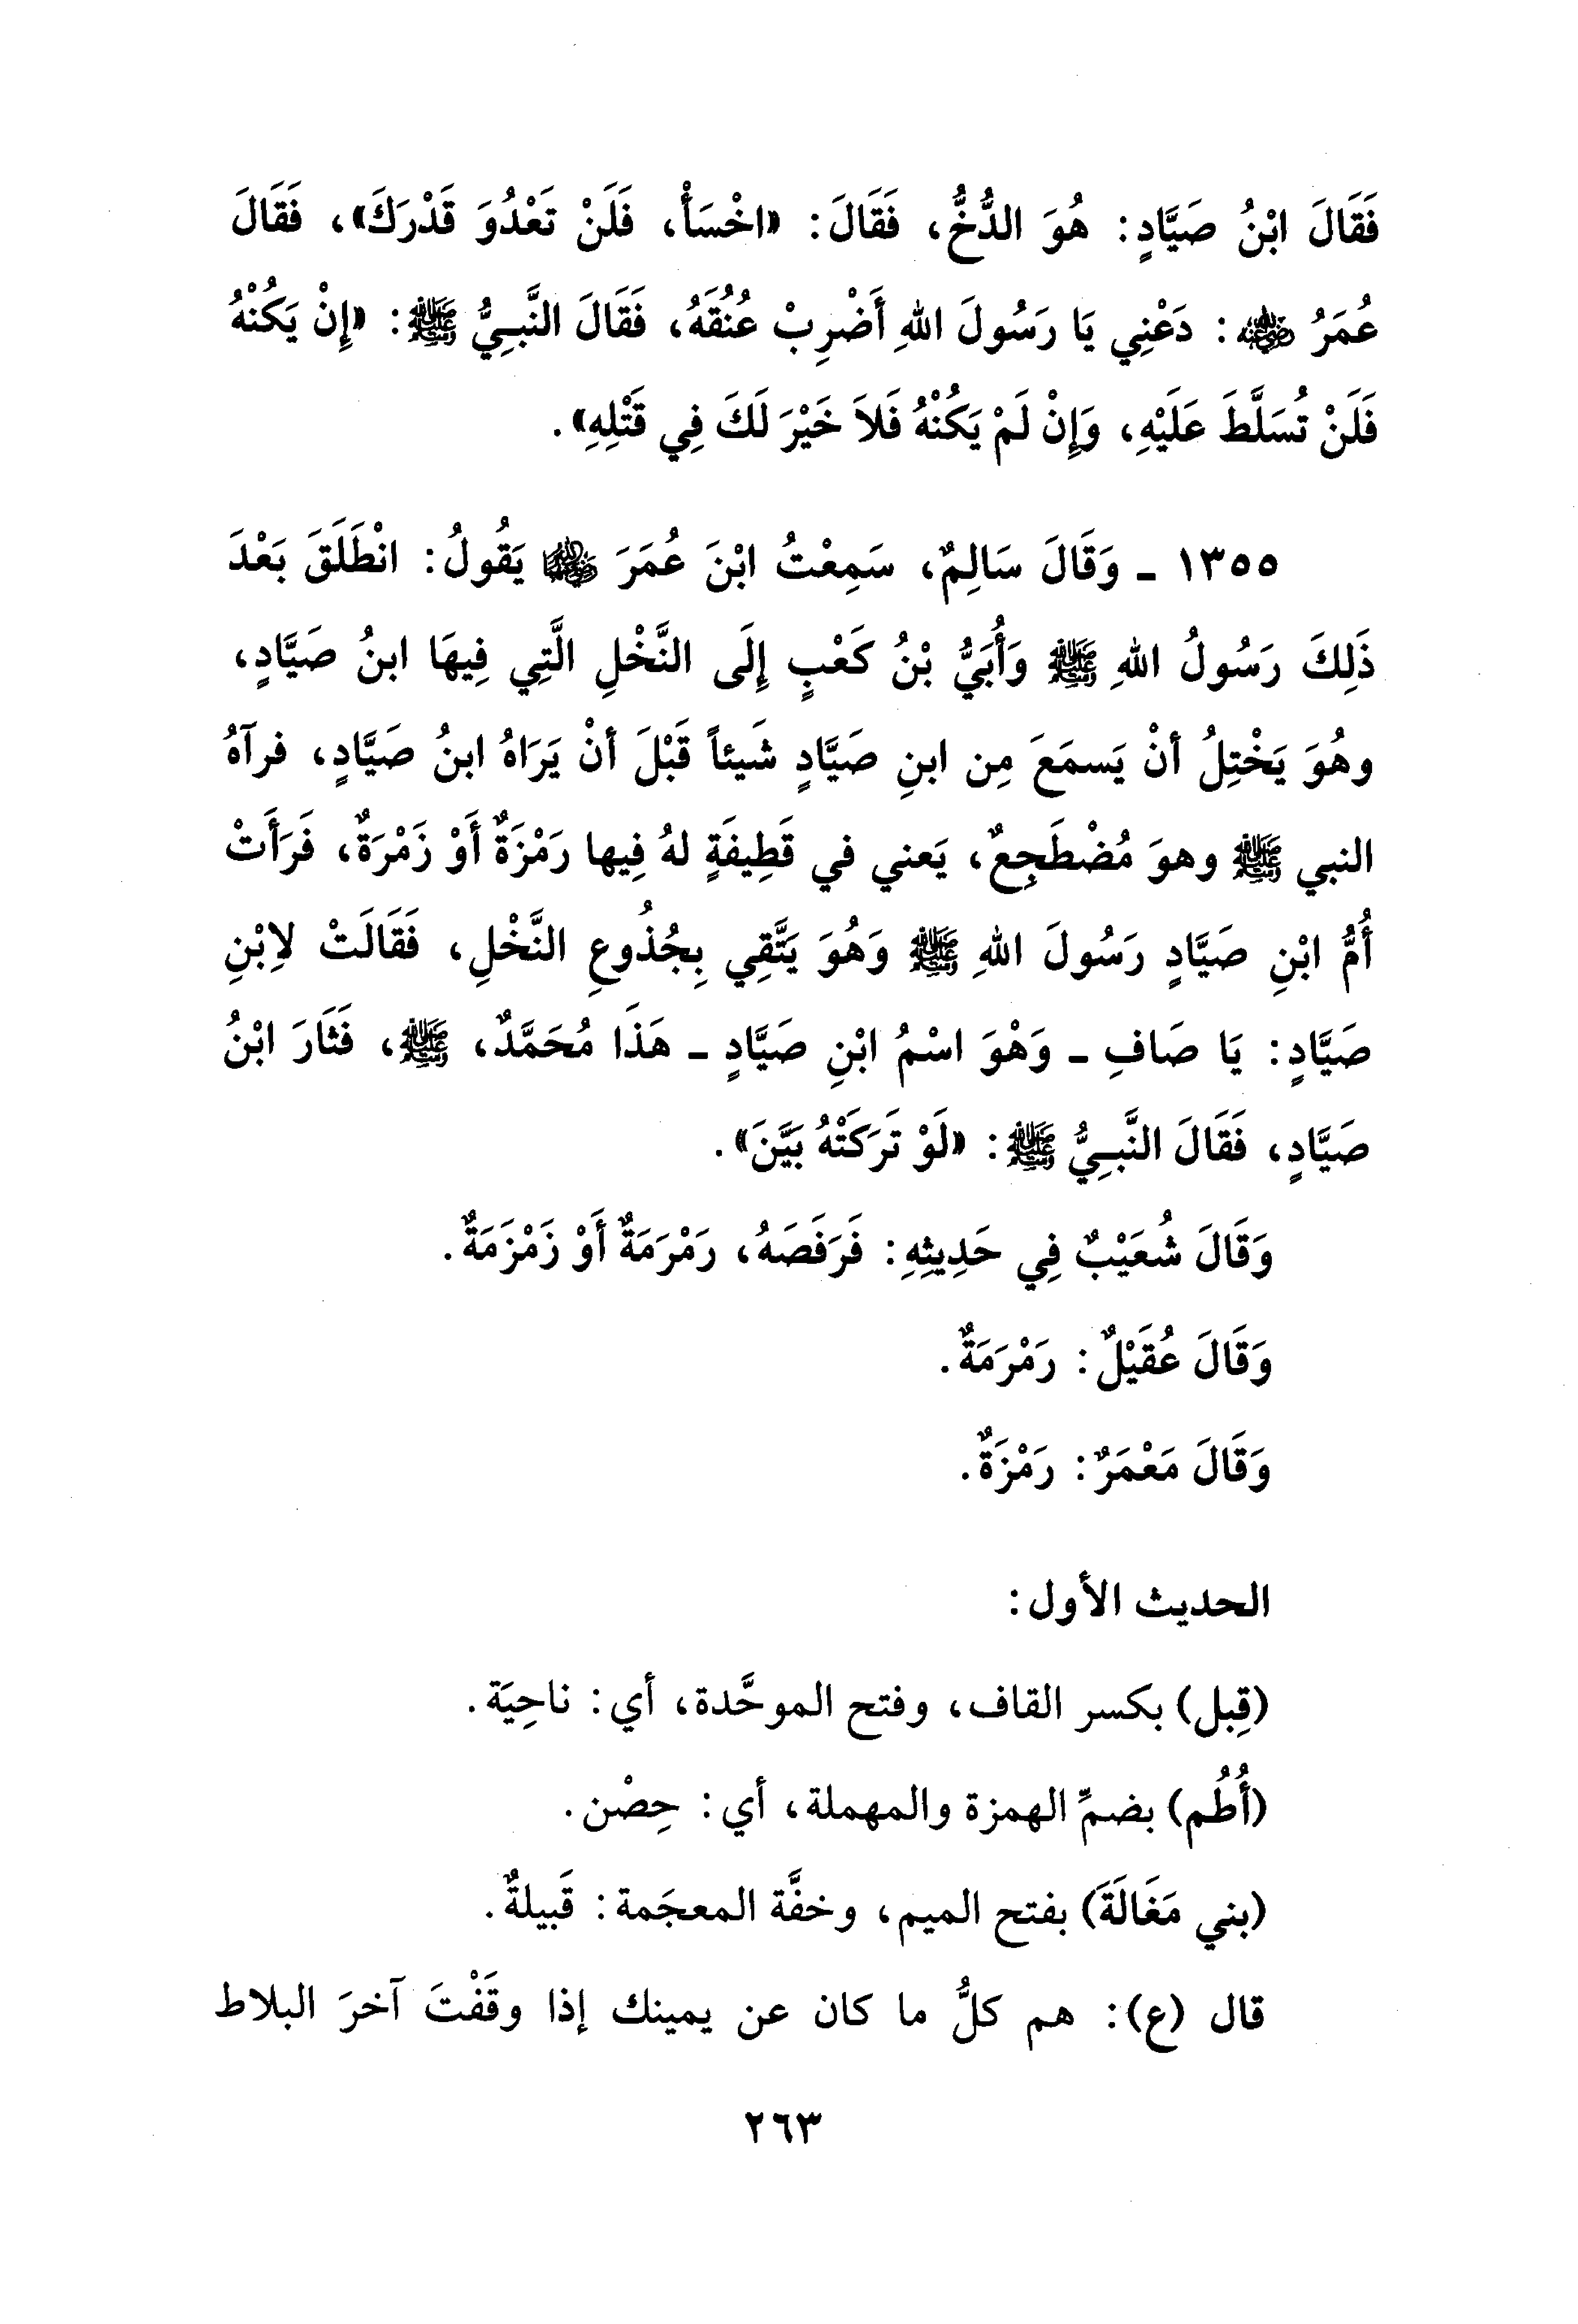 فَقَالَ ابْنُ صَيَّادٍ: هُوَ الدُّخُّ، فَقَالَ: «اخْسَأْ، فَلَنْ تَعْدُوَ قَدْرَكَ»، فَقَالَ
عُمَرُ ﵁: دَعْنِي يَا رَسُولَ اللهِ أَضْرِبْ عُنُقَهُ، فَقَالَ النَّبِيُّ ﷺ: «إِنْ يَكُنْهُ
فَلَنْ تُسَلَّطَ عَلَيْهِ، وَإِنْ لَمْ يَكُنْهُ فَلاَ خَيْرَ لَكَ فِي قَتْلِهِ».
١٣٥٥ ـ وَقَالَ سَالِمٌ، سَمِعْتُ ابْنَ عُمَرَ ﵄ يَقُولُ: انْطَلَقَ بَعْدَ
ذَلِكَ رَسُولُ اللهِ ﷺ وَأُبَيُّ بْنُ كَعْبٍ إِلَى النَّخْلِ الَّتِي فِيهَا ابنُ صَيَّادٍ،
وهُوَ يَخْتِلُ أنْ يَسمَعَ مِن ابنِ صَيَّادٍ شَيئاً قَبْلَ أنْ يَرَاهُ ابنُ صَيَّادٍ، فرآهُ
النبي ﷺ وهوَ مُضْطَجِعٌ، يَعني في قَطِيفَةٍ لهُ فِيها رَمْزَةٌ أَوْ زَمْرَةٌ، فَرَأَتْ
أُمُّ ابْنِ صَيَّادٍ رَسُولَ اللهِ ﷺ وَهُوَ يَتَّقِي بِجُذُوعِ النَّخْلِ، فَقَالَتْ لاِبْنِ
صَيَّادٍ: يَا صَافِ ـ وَهْوَ اسْمُ ابْنِ صَيَّادٍ ـ هَذَا مُحَمَّدٌ، ﷺ، فَثَارَ ابْنُ
صَيَّادٍ، فَقَالَ النَّبِيُّ ﷺ: «لَوْ تَرَكَتْهُ بَيَّنَ».
وَقَالَ شُعَيْبٌ فِي حَدِيثِهِ: فَرَفَصَهُ، رَمْرَمَةٌ أَوْ زَمْزَمَةٌ.
وَقَالَ عُقَيْلٌ: رَمْرَمَةٌ.
وَقَالَ مَعْمَرٌ: رَمْزَةٌ.
الحديث الأول:
(قِبل) بكسر القاف، وفتح الموحَّدة، أي: ناحِيَة.
(أُطُم) بضمِّ الهمزة والمهملة، أي: حِصْن.
(بني مَغَالَةَ) بفتح الميم، وخفَّة المعجَمة: قَبيلةٌ.
قال (ع): هم كلُّ ما كان عن يمينك إذا وقَفْتَ آخرَ البلاط
٢٦٣